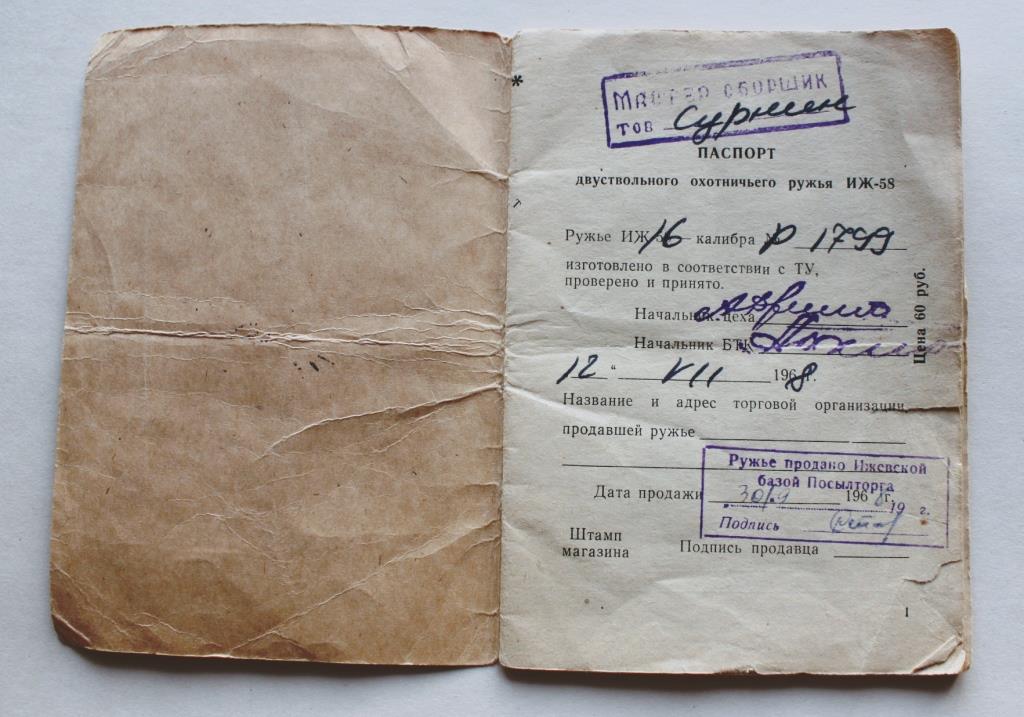 Мастер сборщик
тов Сурнин
ПАСПОРТ
двуствольного охотничьего ружья ИЖ-58
Ружье ИЖ 16 калибра № Р 1799
изготовлено в соответствии с ТУ,
проверено и принято.
Начальник цеха
Начальник БТК
12 " VII 1968г.
Цена 60 руб.
Название и адрес торговой организации,
продавшей ружье
Ружье продано Ижевской
базой Посылторга
Дата продажи 196 г.
19 г.
Подпись
Штамп
магазина Подпись продавца
1